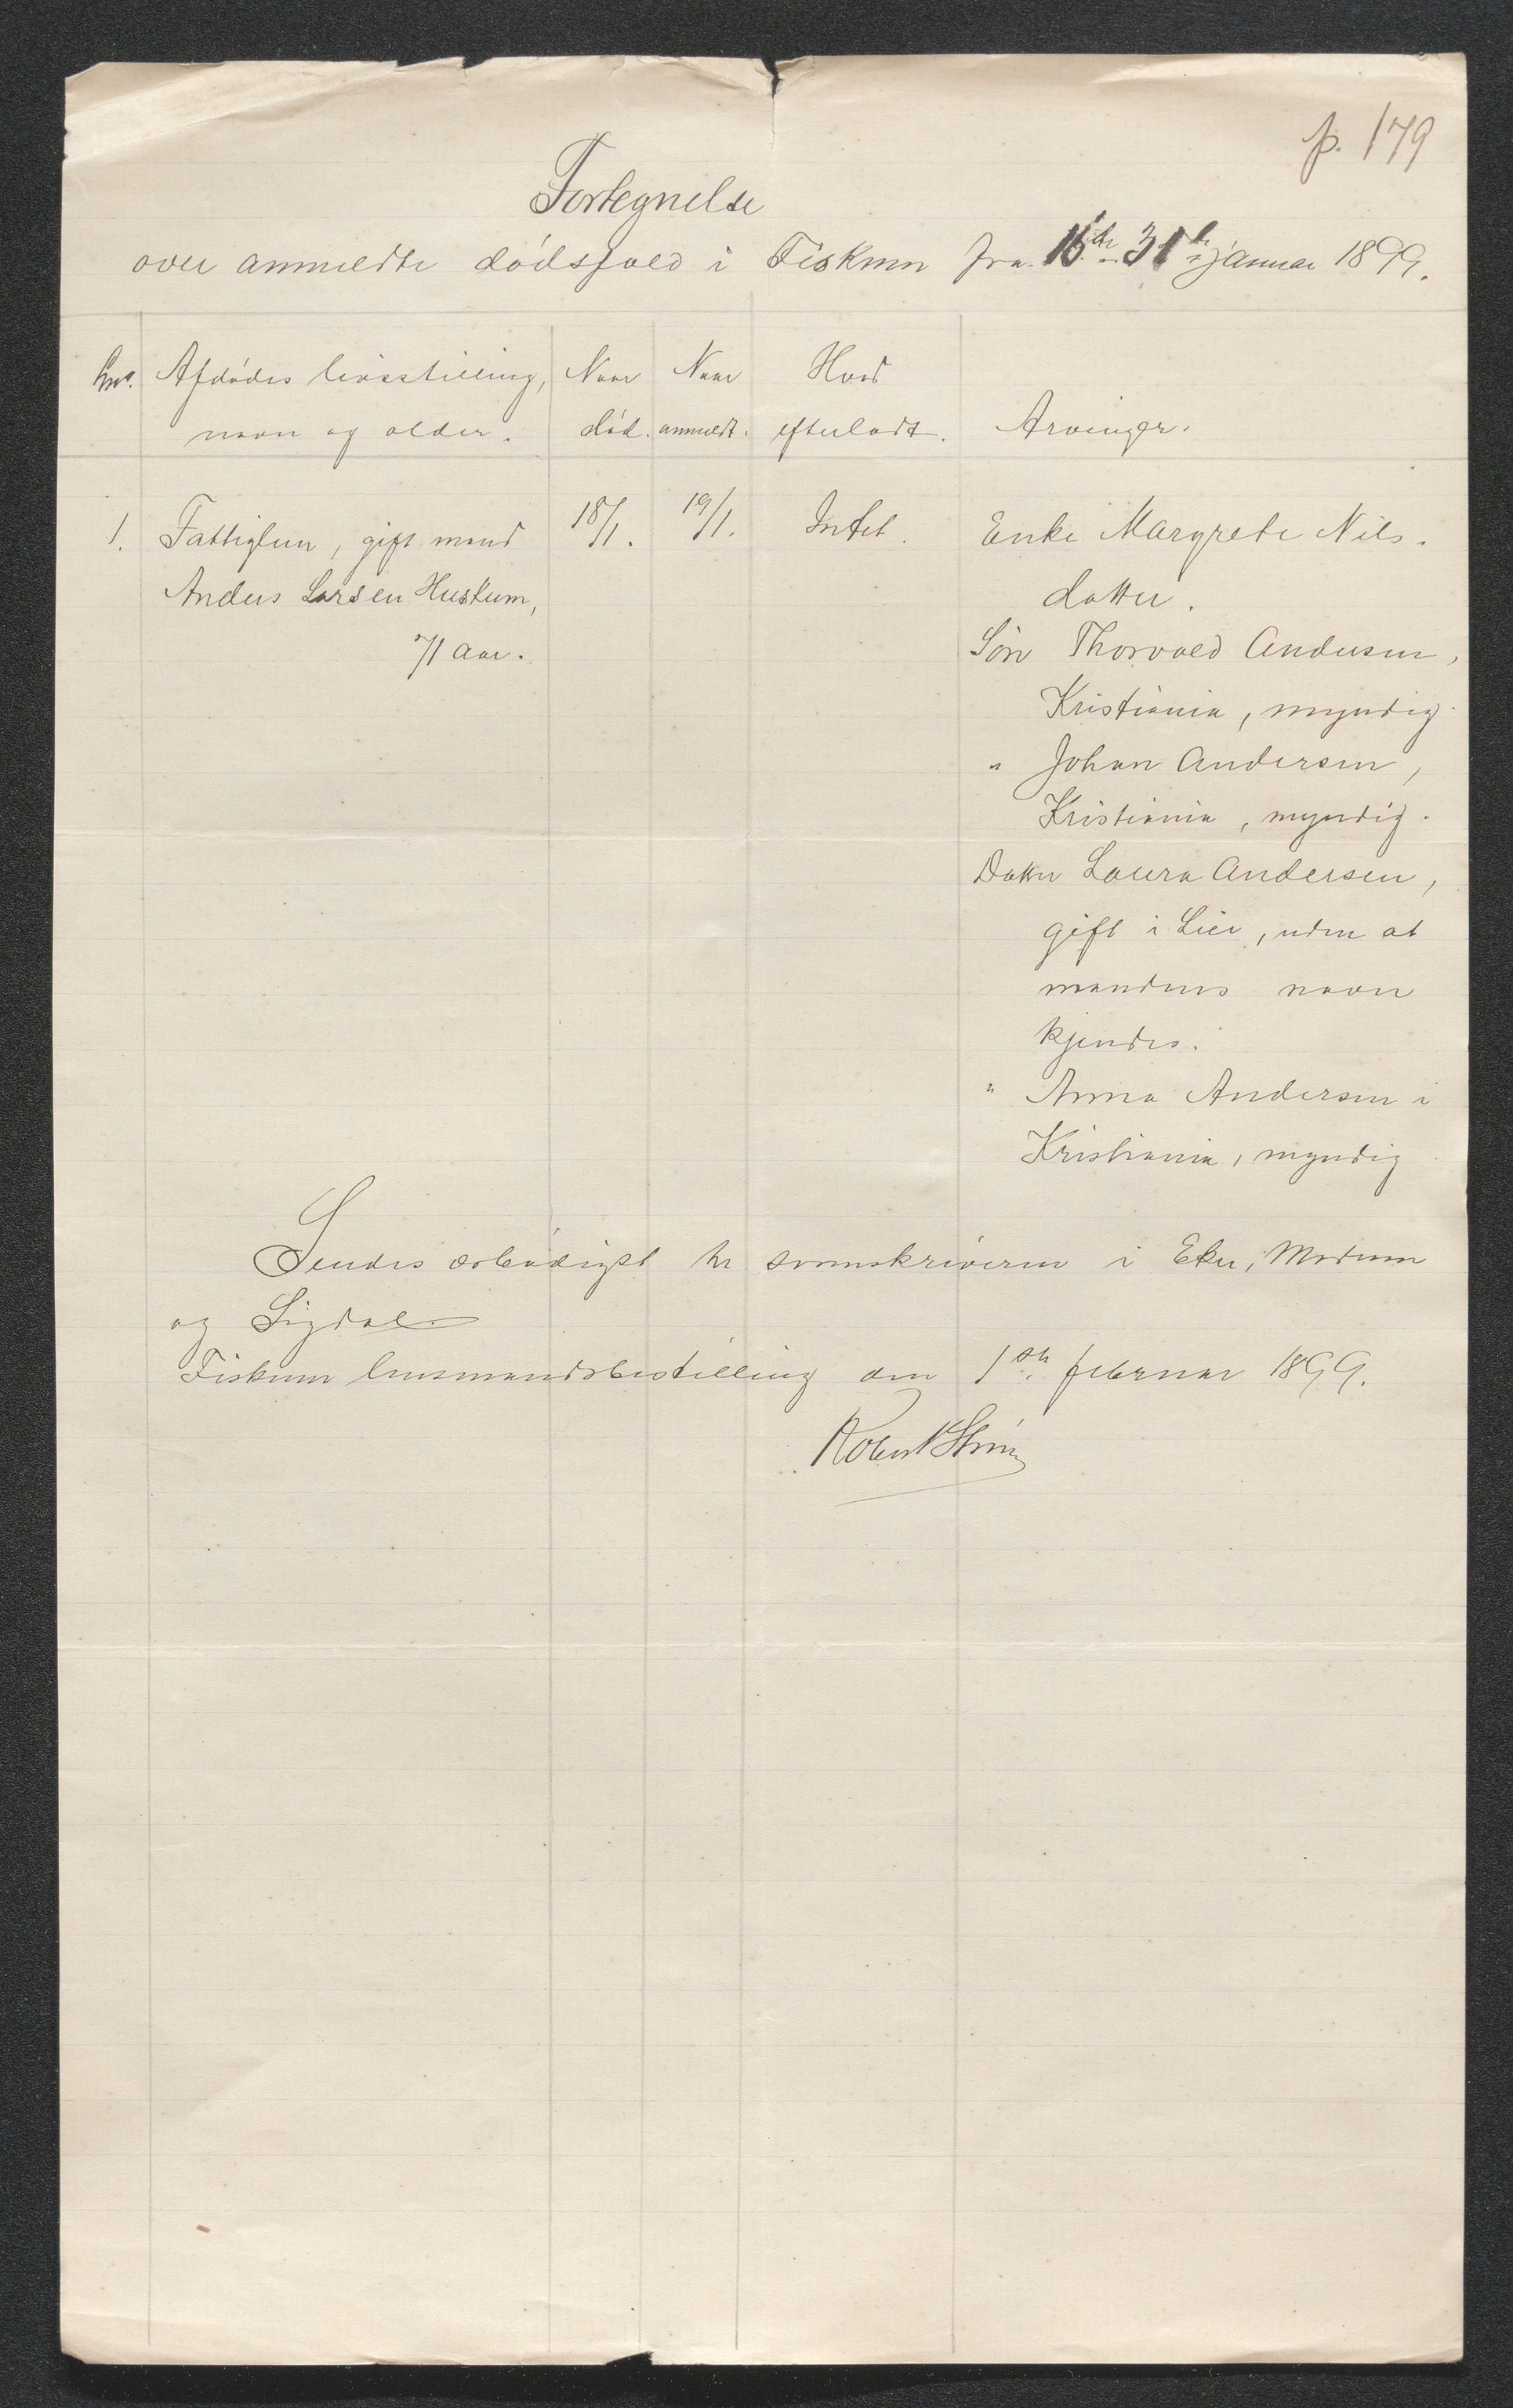 p. 179
Fortegnelse
over anmeldte dødsfald i Fiskum fra 16de - 31te januar 1899.
Lno. Afdødes livsstilling, Naar Naar Hvad
navn og alder. død. anmeldt. efterladt. Arvinger.
1. Fattiglem, gift mand 18/1. 19/1. Intet. Enke Margrete Nils-
Anders Larsen Huskum, datter.
71 aar. Søn Thorvald Andersen,
Kristiania, myndig.
" Johan Andersen,
Kristiania, myndig.
Datter Laura Andersen,
gift i Lier, uden at
mandens navn
kjendes.
" Anna Andersen i
Kristiania, myndig
Sendes ærbødigst hr sorenskriveren i Eker, Modum
og Sigdal
Fiskum lensmandsbestilling den 1ste februar 1899.
Robert